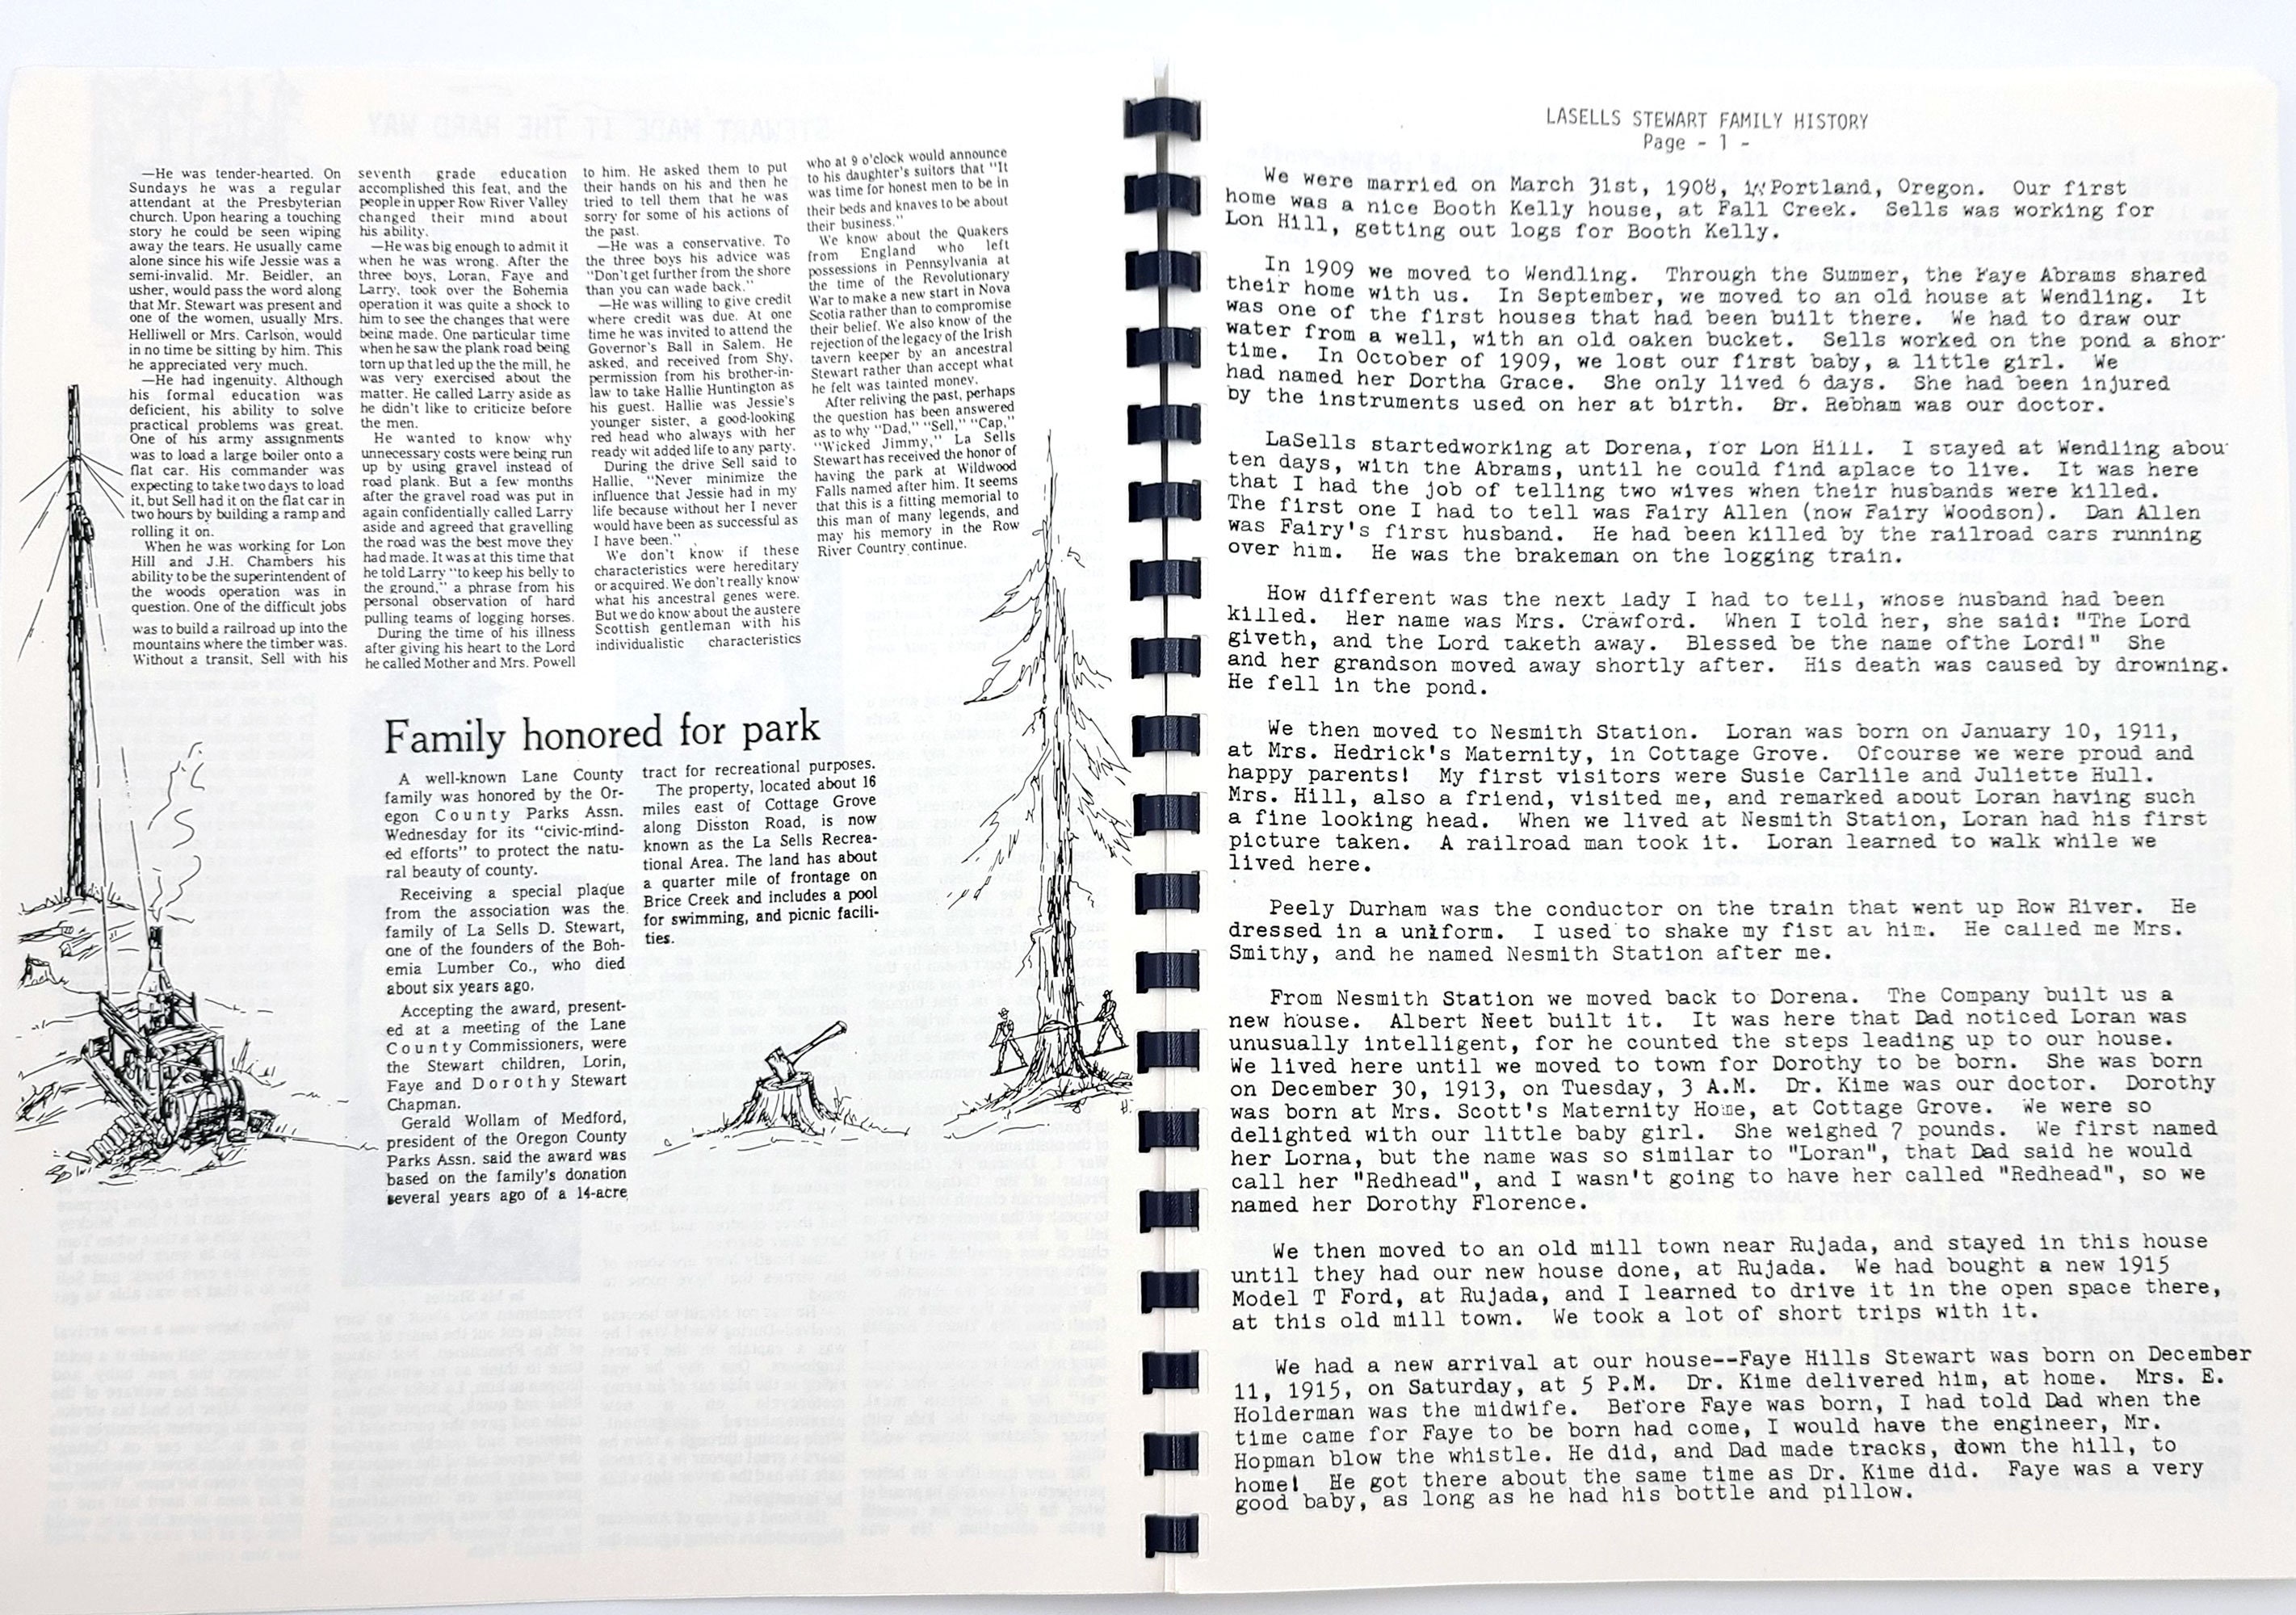 —He was tender-hearted. On
Sundays he was a regular
attendant at the Presbyterian
church. Upon hearing a touching
story he could be seen wiping
away the tears. He usually came
alone since his wife Jessie was a
semi-invalid. Mr. Beidler, an
usher, would pass the word along
that Mr. Stewart was present and
one of the women, usually Mrs.
Helliwell or Mrs. Carlson, would
in no time be sitting by him. This
he appreciated very much.
—He had ingenuity. Although
his formal education was
deficient, his ability to solve
practical problems was great.
One of his army assignments
was to load a large boiler onto a
flat car. His commander was
expecting to take two days to load
it, but Sell had it on the flat car in
two hours by building a ramp and
rolling it on.
When he was working for Lon
Hill and J.H. Chambers his
ability to be the superintendent of
the woods operation was in
question. One of the difficult jobs
was to build a railroad up into the
mountains where the timber was.
Without a transit, Sell with his
seventh grade education
accomplished this feat, and the
people in upper Row River Valley
changed their mind about
his ability.
—He was big enough to admit it
when he was wrong. After the
three boys, Loran, Faye and
Larry, took over the Bohemia
operation it was quite a shock to
him to see the changes that were
being made. One particular time
when he saw the plank road being
torn up that led up the the mill, he
was very exercised about the
matter. He called Larry aside as
he didn't like to criticize before
the men.
He wanted to know why
unnecessary costs were being run
up by using gravel instead of
road plank. But a few months
after the gravel road was put in
again confidentially called Larry
aside and agreed that gravelling
the road was the best move they
had made. It was at this time that
he told Larry "to keep his belly to
the ground," a phrase from his
personal observation of hard
pulling teams of logging horses.
During the time of his illness
after giving his heart to the Lord
he called Mother and Mrs. Powell
to him. He asked them to put
their hands on his and then he
tried to tell them that he was
sorry for some of his actions of
the past.
—He was a conservative. To
the three boys his advice was
"Don't get further from the shore
than you can wade back."
—He was willing to give credit
where credit was due. At one
time he was invited to attend the
Governor's Ball in Salem. He
asked, and received from Shy,
permission from his brother-in-
law to take Hallie Huntington as
his guest. Hallie was Jessie's
younger sister, a good-looking
red head who always with her
ready wit added life to any party.
During the drive Sell said to
Hallie, "Never minimize the
influence that Jessie had in my
life because without her I never
would have been as successful as
I have been."
We don't know if these
characteristics were hereditary
or acquired. We don't really know
what his ancestral genes were.
But we do know about the austere
Scottish gentleman with his
individualistic characteristics
who at 9 o'clock would announce
to his daughter's suitors that "It
was time for honest men to be in
their beds and knaves to be about
their business."
We know about the Quakers
from England who left
possessions in Pennsylvania at
the time of the Revolutionary
War to make a new start in Nova
Scotia rather than to compromise
their belief. We also know of the
rejection of the legacy of the Irish
tavern keeper by an ancestral
Stewart rather than accept what
he felt was tainted money.
After reliving the past, perhaps
the question has been answered
as to why "Dad," "Sell," "Cap,"
"Wicked Jimmy," La Sells
Stewart has received the honor of
having the park at Wildwood
Falls named after him. It seems
that this is a fitting memorial to
this man of many legends, and
may his memory in the Row
River Country continue.
Family honored for park
A well-known Lane County
family was honored by the Or-
egon County Parks Assn.
Wednesday for its "civic-mind-
ed efforts" to protect the natu-
ral beauty of county.
Receiving a special plaque
from the association was the
family of La Sells D. Stewart,
one of the founders of the Boh-
emia Lumber Co., who died
about six years ago.
Accepting the award, present-
ed at a meeting of the Lane
County Commissioners, were
the Stewart children, Lorin,
Faye and Dorothy Stewart
Chapman.
Gerald Wollam of Medford,
president of the Oregon County
Parks Assn. said the award was
based on the family's donation
several years ago of a 14-acre
tract for recreational purposes.
The property, located about 16
miles east of Cottage Grove
along Disston Road, is now
known as the La Sells Recrea-
tional Area. The land has about
a quarter mile of frontage on
Brice Creek and includes a pool
for swimming, and picnic facili-
ties.
LASELLS STEWART FAMILY HISTORY
Page - 1 -
We were married on March 31st, 1908, in Portland, Oregon. Our first
home was a nice Booth Kelly house, at Fall Creek. Sells was working for
Lon Hill, getting out logs for Booth Kelly.
In 1909 we moved to Wendling. Through the Summer, the Faye Abrams shared
their home with us. In September, we moved to an old house at Wendling. It
was one of the first houses that had been built there. We had to draw our
water from a well, with an old oaken bucket. Sells worked on the pond a shor
time. In October of 1909, we lost our first baby, a little girl. We
had named her Dortha Grace. She only lived 6 days. She had been injured
by the instruments used on her at birth. Dr. Rebham was our doctor.
LaSells startedworking at Dorena, for Lon Hill. I stayed at Wendling abou
ten days, with the Abrams, until he could find aplace to live. It was here
that I had the job of telling two wives when their husbands were killed.
The first one I had to tell was Fairy Allen (now Fairy Woodson). Dan Allen
was Fairy's first husband. He had been killed by the railroad cars running
over him. He was the brakeman on the logging train.
How different was the next lady I had to tell, whose husband had been
killed. Her name was Mrs. Crawford. When I told her, she said: "The Lord
giveth, and the Lord taketh away. Blessed be the name ofthe Lord!" She
and her grandson moved away shortly after. His death was caused by drowning.
He fell in the pond.
We then moved to Nesmith Station. Loran was born on January 10, 1911,
at Mrs. Hedrick's Maternity, in Cottage Grove. Ofcourse we were proud and
happy parents! My first visitors were Susie Carlile and Juliette Hull.
Mrs. Hill, also a friend, visited me, and remarked about Loran having such
a fine looking head. When we lived at Nesmith Station, Loran had his first
picture taken. A railroad man took it. Loran learned to walk while we
lived here.
Peely Durham was the conductor on the train that went up Row River. He
dressed in a uniform. I used to shake my fist at him. He called me Mrs.
Smithy, and he named Nesmith Station after me.
From Nesmith Station we moved back to Dorena. The Company built us a
new house. Albert Neet built it. It was here that Dad noticed Loran was
unusually intelligent, for he counted the steps leading up to our house.
We lived here until we moved to town for Dorothy to be born. She was born
on December 30, 1913, on Tuesday, 3 A.M. Dr. Kime was our doctor. Dorothy
was born at Mrs. Scott's Maternity Home, at Cottage Grove. We were so
delighted with our little baby girl. She weighed 7 pounds. We first named
her Lorna, but the name was so similar to "Loran", that Dad said he would
call her "Redhead", and I wasn't going to have her called "Redhead", so we
named her Dorothy Florence.
We then moved to an old mill town near Rujada, and stayed in this house
until they had our new house done, at Rujada. We had bought a new 1915
Model T Ford, at Rujada, and I learned to drive it in the open space there,
at this old mill town. We took a lot of short trips with it.
We had a new arrival at our house--Faye Hills Stewart was born on December
11, 1915, on Saturday, at 5 P.M. Dr. Kime delivered him, at home. Mrs. E.
Holderman was the midwife. Before Faye was born, I had told Dad when the
time came for Faye to be born had come, I would have the engineer, Mr.
Hopman blow the whistle. He did, and Dad made tracks, down the hill, to
home! He got there about the same time as Dr. Kime did. Faye was a very
good baby, as long as he had his bottle and pillow.